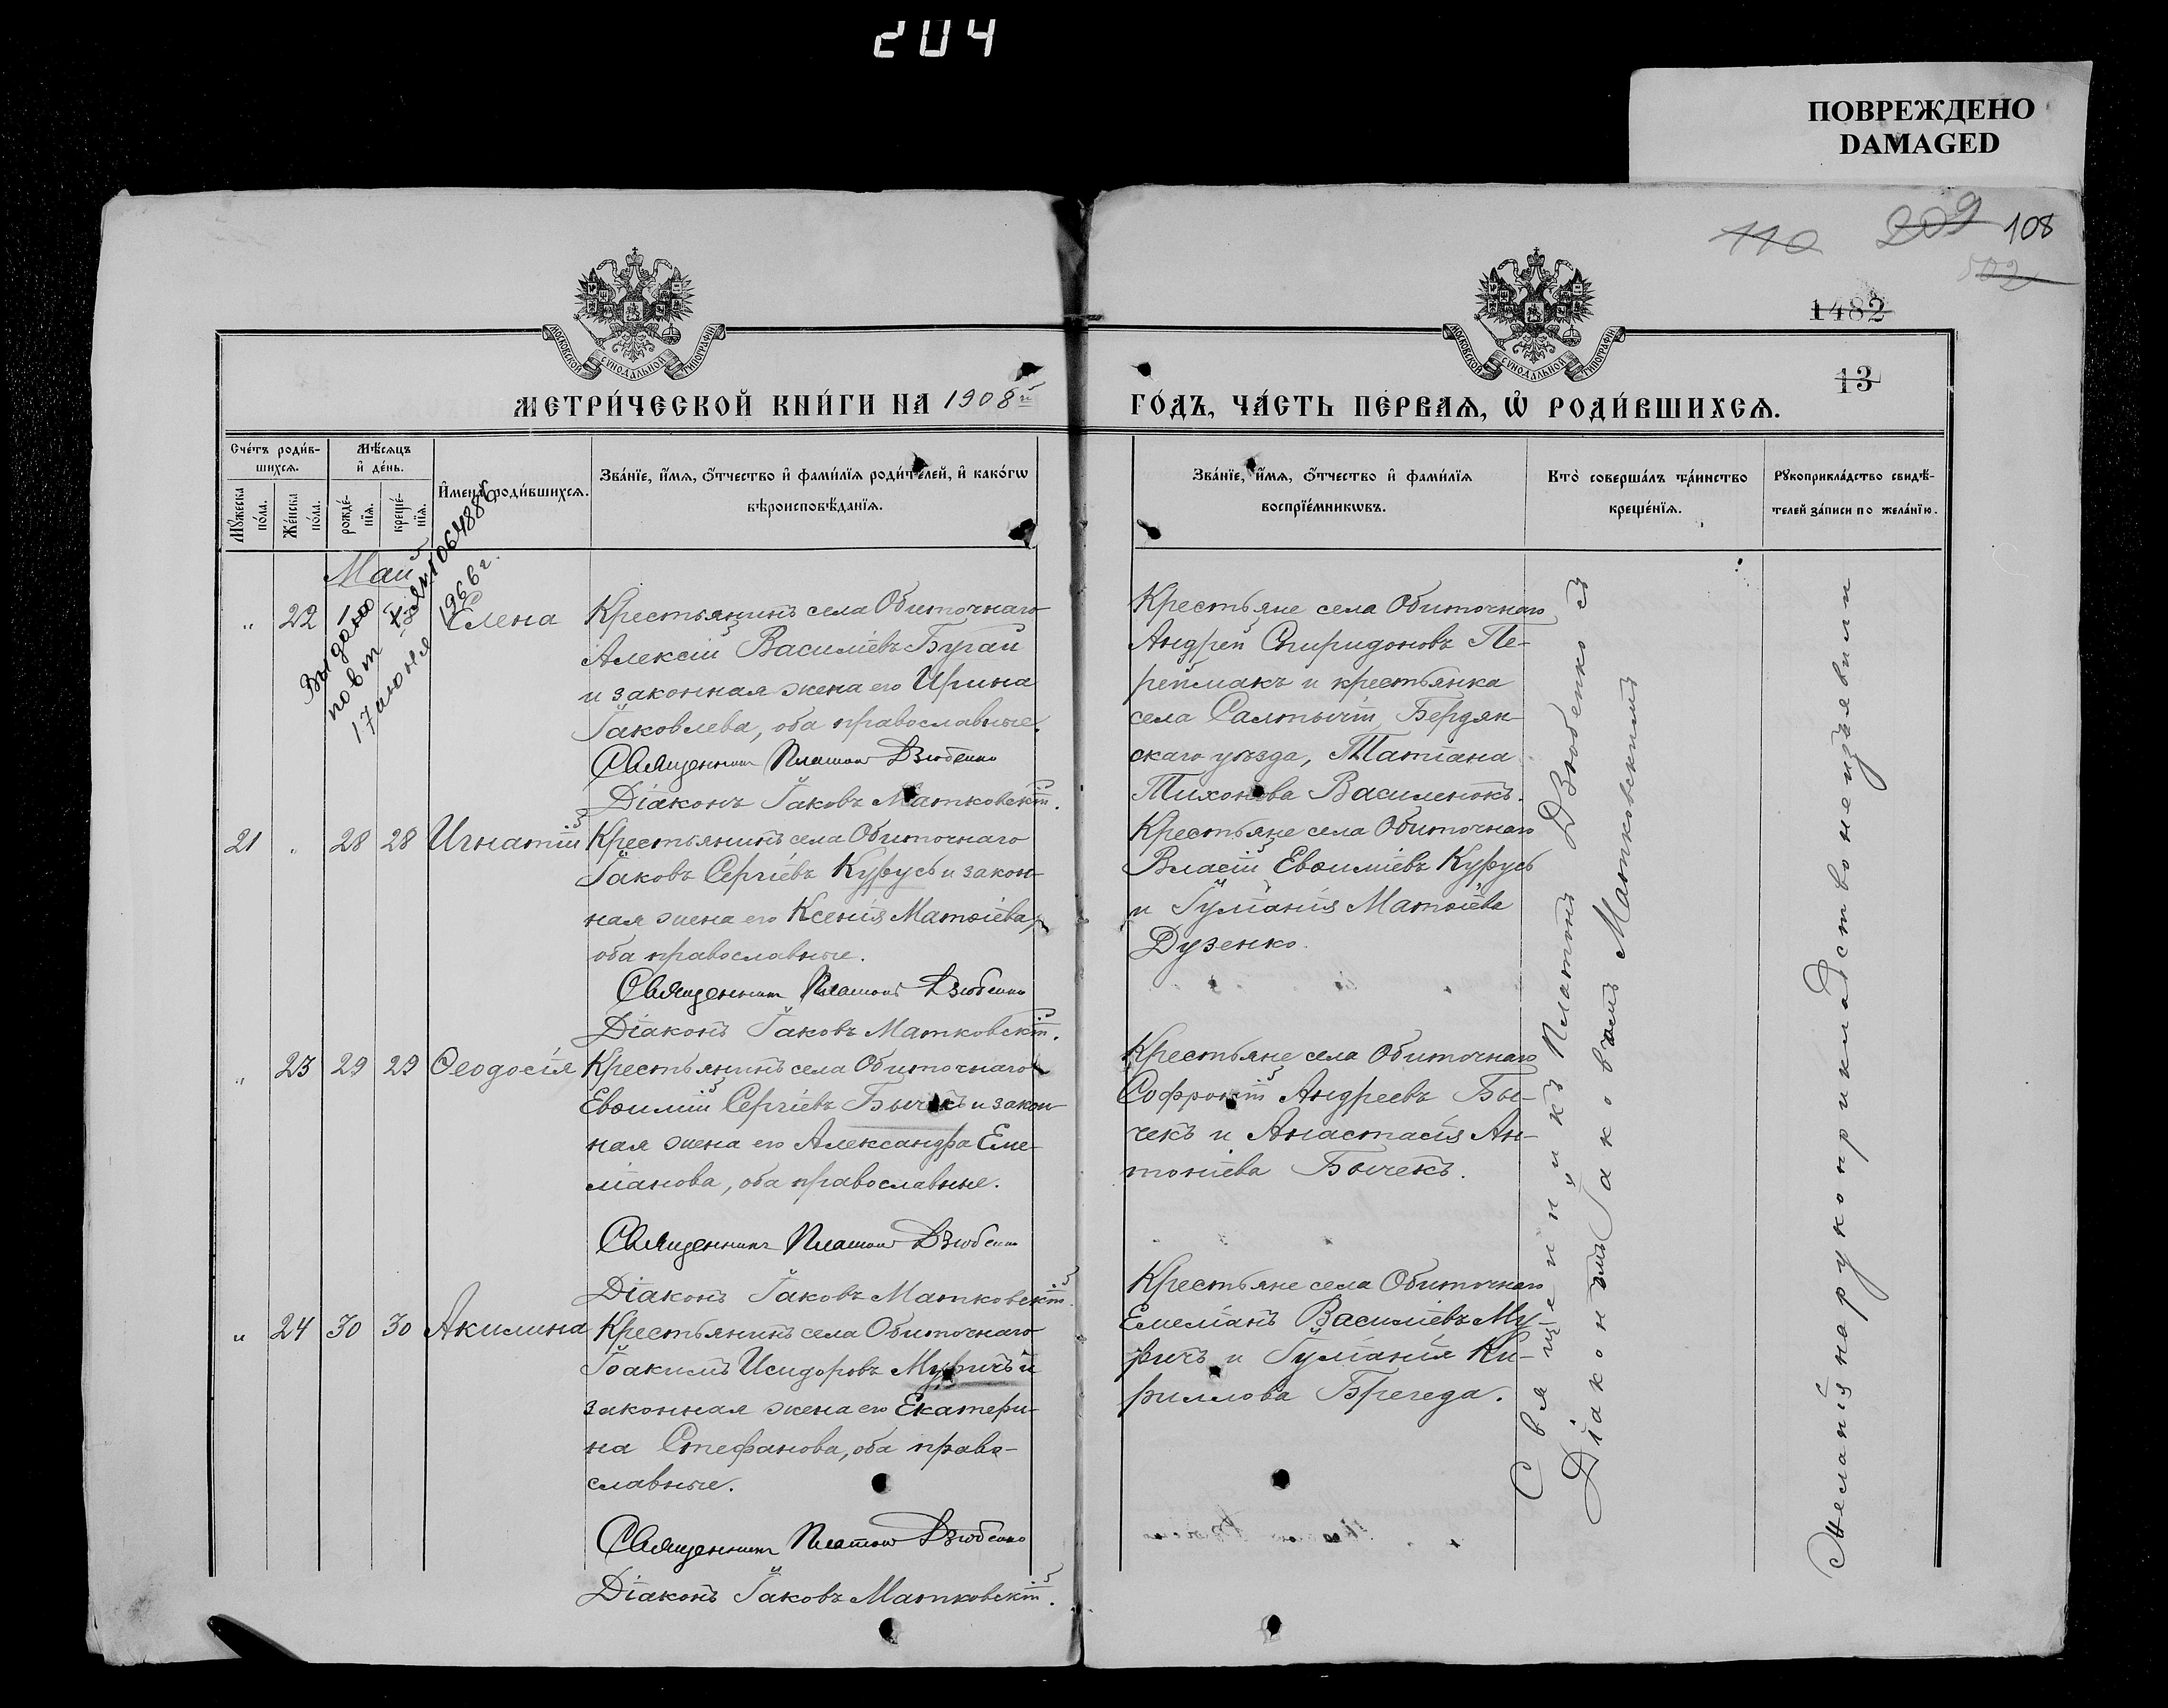 204
ПОВРЕЖДЕНО
DAMAGED
110
209
108
502
1482
13
МОСКОВСКОЙ СУНОДАЛЬНОЙ ТИПОГРАФІИ
МОСКОВСКОЙ СУНОДАЛЬНОЙ ТИПОГРАФІИ
МЕТРИ́ЧЕСКОЙ КНИ́ГИ НА 1908й
ГО́ДЪ, ЧА́СТЬ ПЕ́РВАѦ, Ѡ҆ РОДИ́ВШИХСѦ.
Сче́тъ роди́в-
шихсѧ.
Мꙋ́жеска
по́ла.
Же́нска
по́ла.
Мѣ́сѧцъ
и҆ де́нь.
рожде́-
нїѧ.
креще́-
нїѧ.
И҆мена̀ роди́вшихсѧ.
Зва́нїе, и҆́мѧ, ѻ҆́тчество и҆ фами́лїѧ роди́телей, и҆ како́гѡ
вѣроисповѣ́данїѧ.
Зва́нїе, и҆́мѧ, ѻ҆́тчество и҆ фами́лїѧ
воспрїе́мникѡвъ.
Кто̀ соверша́лъ та́инство
креще́нїѧ.
Рꙋкоприкла́дство свидѣ́-
телей за́писи по жела́нїю.
Май
Выдано
повт
17 июня
1966 г.
" 22 Елена
Крестьянинъ села Обиточнаго
Алексій Василіевъ Бугай
и законная жена его Ирина
Іаковлева, оба православные.
Священникъ Платонъ Дзюбенко
Діаконъ Іаковъ Матковскій.
Крестьяне села Обиточнаго
Андрей Спиридоновъ Пе-
репмакъ и крестьянка
села Салтычіи, Бердян-
скаго уѣзда, Татіана
Тихонова Василенокъ.
21 " 28 28 Игнатій
Крестьянинъ села Обиточнаго
Іаковъ Сергіевъ Курусь и закон-
ная жена его Ксенія Матѳіева,
оба православные.
Священникъ Платонъ Дзюбенко
Діаконъ Іаковъ Матковскій.
Крестьяне села Обиточнаго
Власій Евѳиміевъ Курусь
и Іуліанія Матѳіева
Дузенко.
" 23 29 29 Ѳеодосія
Крестьянинъ села Обиточнаго
Евѳимій Сергіевъ Бычекъ и закон-
ная жена его Александра Еме-
ліанова, оба православные.
Священникъ Платонъ Дзюбенко
Діаконъ Іаковъ Матковскій.
Крестьяне села Обиточнаго
Софроній Андреевъ Бы-
чекъ и Анастасія Ан-
тоніева Бычекъ.
" 24 30 30 Акилина
Крестьянинъ села Обиточнаго
Іоакимъ Исидоровъ Муричъ и
законная жена его Екатери-
на Стефанова, оба право-
славные.
Священникъ Платонъ Дзюбенко
Діаконъ Іаковъ Матковскій.
Крестьяне села Обиточнаго
Емеліанъ Василіевъ Му-
ричъ и Іуліанія Ки-
риллова Брегеда.
Священникъ Платонъ Дзюбенко съ
Діакономъ Іаковомъ Матковскимъ
Желанія на рукоприкладство не изъявили